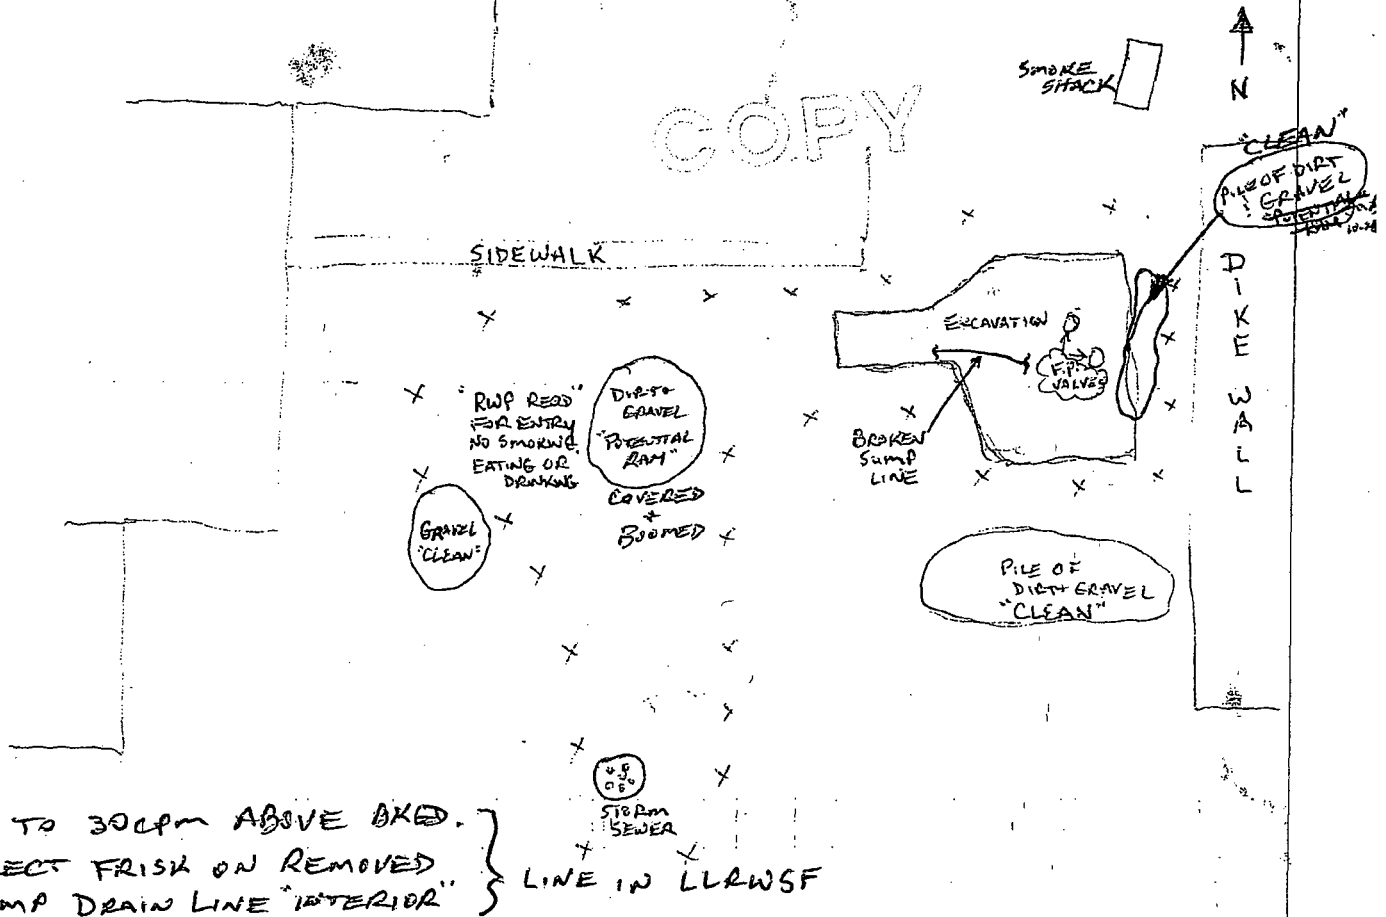 COPY
SMOKE
SHACK
N
"CLEAN"
PILE OF DIRT
GRAVEL
POTENTIAL
SIDEWALK
EXCAVATION
F.P.
VALVES
DIKE WALL
"RWP REQD"
FOR ENTRY
NO SMOKING
EATING OR
DRINKING
DIRT +
GRAVEL
"POTENTIAL
RAM"
COVERED
+
BOOMED
BROKEN
SUMP
LINE
GRAVEL
"CLEAN"
PILE OF
DIRT + GRAVEL
"CLEAN"
STORM
SEWER
TO 30CPM ABOVE BKGD.
ECT FRISK ON REMOVED
MP DRAIN LINE "INTERIOR"
LINE IN LLRWSF